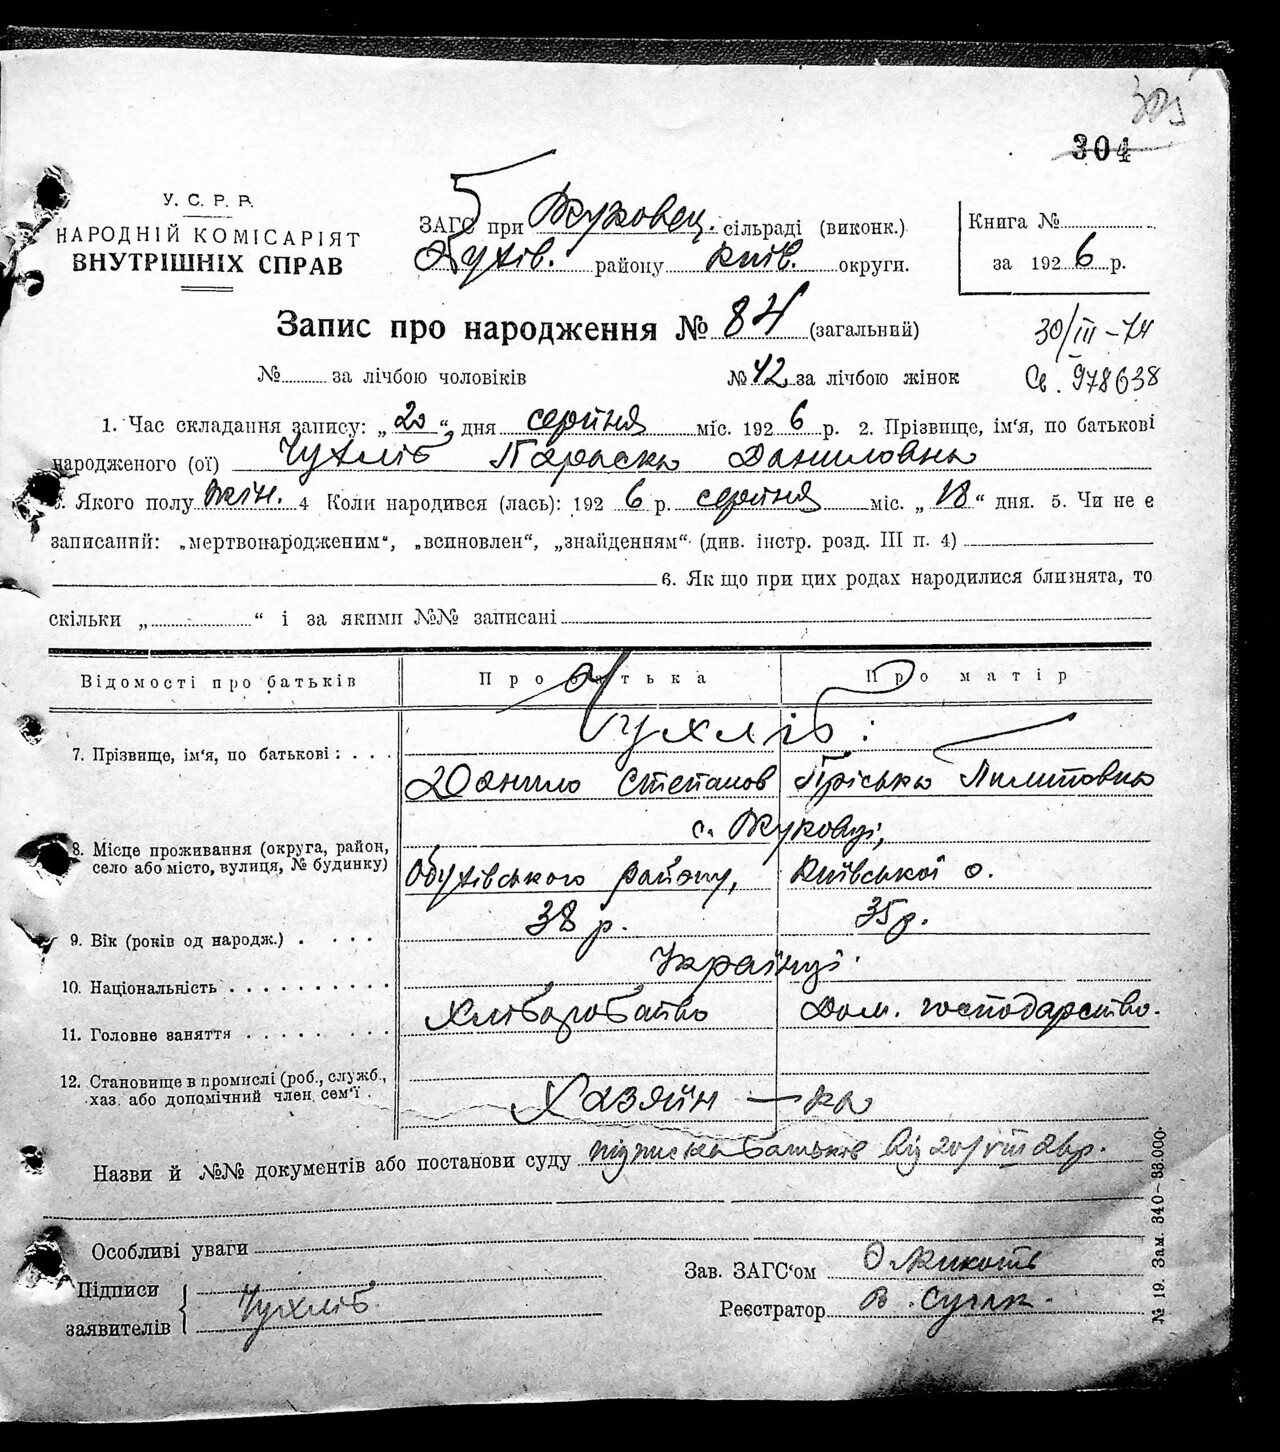 305
304
У. С. Р. Р.
НАРОДНІЙ КОМІСАРІЯТ
ВНУТРІШНІХ СПРАВ
ЗАГС при Жуковец. сільраді (виконк.)
Обухів. району Київ. округи.
Книга №
за 1926 р.
Запис про народження № 84 (загальний)
30/III-74
№ за лічбою чоловіків № 42 за лічбою жінок
Св. 978638
1. Час складання запису: „20“ дня серпня міс. 1926 р. 2. Прізвище, ім'я, по батькові
народженого (ої) Чухліб Параска Даниловна
3. Якого полу жін. 4 Коли народився (лась): 1926 р. серпня міс. „18“ дня. 5. Чи не є
записаний: „мертвонародженим“, „всиновлен“, „знайденням“ (див. інстр. розд. III п. 4)
6. Якщо при цих родах народилися близнята, то
скільки „ “ і за якими №№ записані
Відомості про батьків Про батька Про матір
Чухліб:
7. Прізвище, ім'я, по батькові:
Данило Степанов Пріська Пилиповна
с. Жуковці,
8. Місце проживання (округа, район,
село або місто, вулиця, № будинку)
Обухівського району, Київської о.
9. Вік (років од народж.) 38 р. 35 р.
10. Національність Українці
11. Головне заняття Хліборобство Дом. господарство.
12. Становище в промислі (роб., служб.,
хаз. або допомічний член сем'ї
Хазяйн — ка
Назви й №№ документів або постанови суду підписка батьків від 20/VIII 26р.
Особливі уваги
Підписи
заявителів
Чухліб
Зав. ЗАГС'ом
Реєстратор В.
№ 19. Зам. 340—33.000.